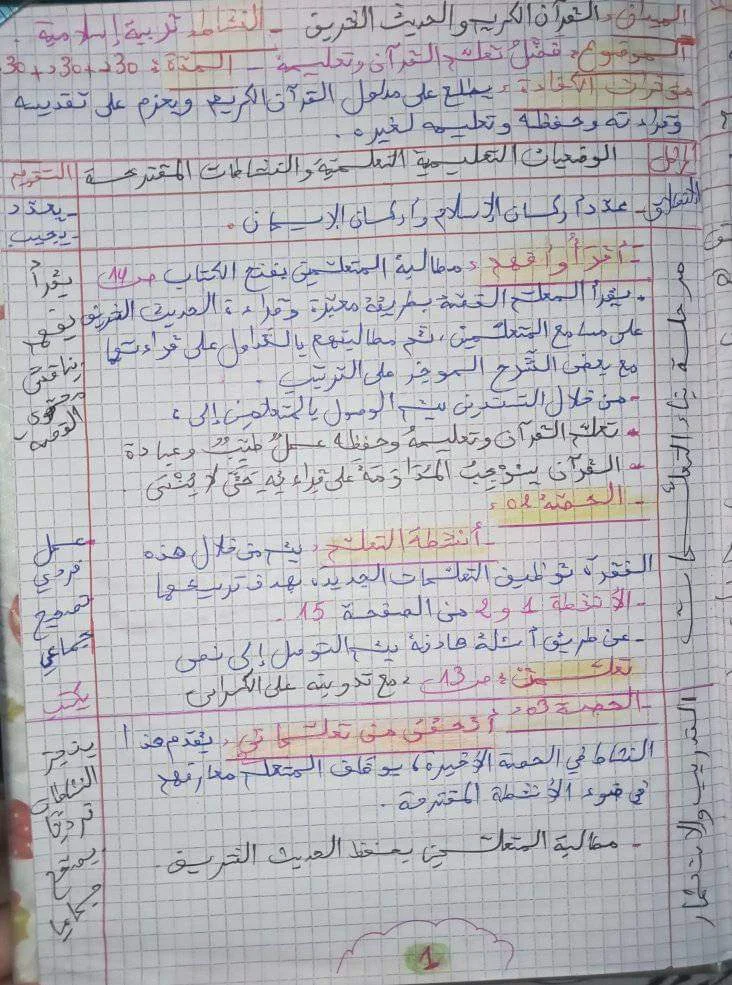 الميدان: القرآن الكريم والحديث الشريف - النشاط: تربية إسلامية.
الموضوع: فضل تعلم القرآن وتعليمه - المدة: 30د+30د+30د
مؤشرات الكفاءة: يطلع على مدلول القرآن الكريم ويعزم على تقديسه
وقراءته وحفظه وتعليمه لغيره.
المراحل الوضعيات التعليمية التعلمية والنشاطات المقترحة التقويم
الانطلاق - عدد أركان الإسلام وأركان الإيمان.
- يعدد
- يجيب
مرحلة بناء التعلمات
- أقرأ وأفهم: مطالبة المتعلمين بفتح الكتاب ص 14
- يقرأ المعلم القصة بطريقة معبرة وقراءة الحديث الشريف
على مسامع المتعلمين، ثم مطالبتهم بالتداول على قراءتها
مع بعض الشرح الموجز على الترتيب.
- من خلال السندين يتم الوصول بالمتعلمين إلى:
• تعلم القرآن وتعليمه وحفظه عمل طيب وعبادة
- القرآن يستوجب المداومة على قراءته حتى لا ينسى.
- الحصة 02:
- أنشطة التعلم: يتم من خلال هذه
الفقرة توظيف التعلمات الجديدة بهدف ترسيخها
- الأنشطة 1 و 2 من الصفحة 15.
- عن طريق أسئلة هادفة يتم التوصل إلى نص
تعلمت: ص 13، مع تدوينه على الكراس
يقرأ
يفهم
يناقش
محتوى
القصة
عمل
فردي
تصحيح
جماعي
يكتب
التدريب والاستثمار
- الحصة 03: أتحقق من تعلماتي: يقدم هذا
النشاط في الحصة الأخيرة، يوظف المتعلم معارفهم
في ضوء الأنشطة المقترحة.
- مطالبة المتعلمين بحفظ الحديث الشريف.
ينجز
النشاطات
فرديا
يصحح
جماعيا
1